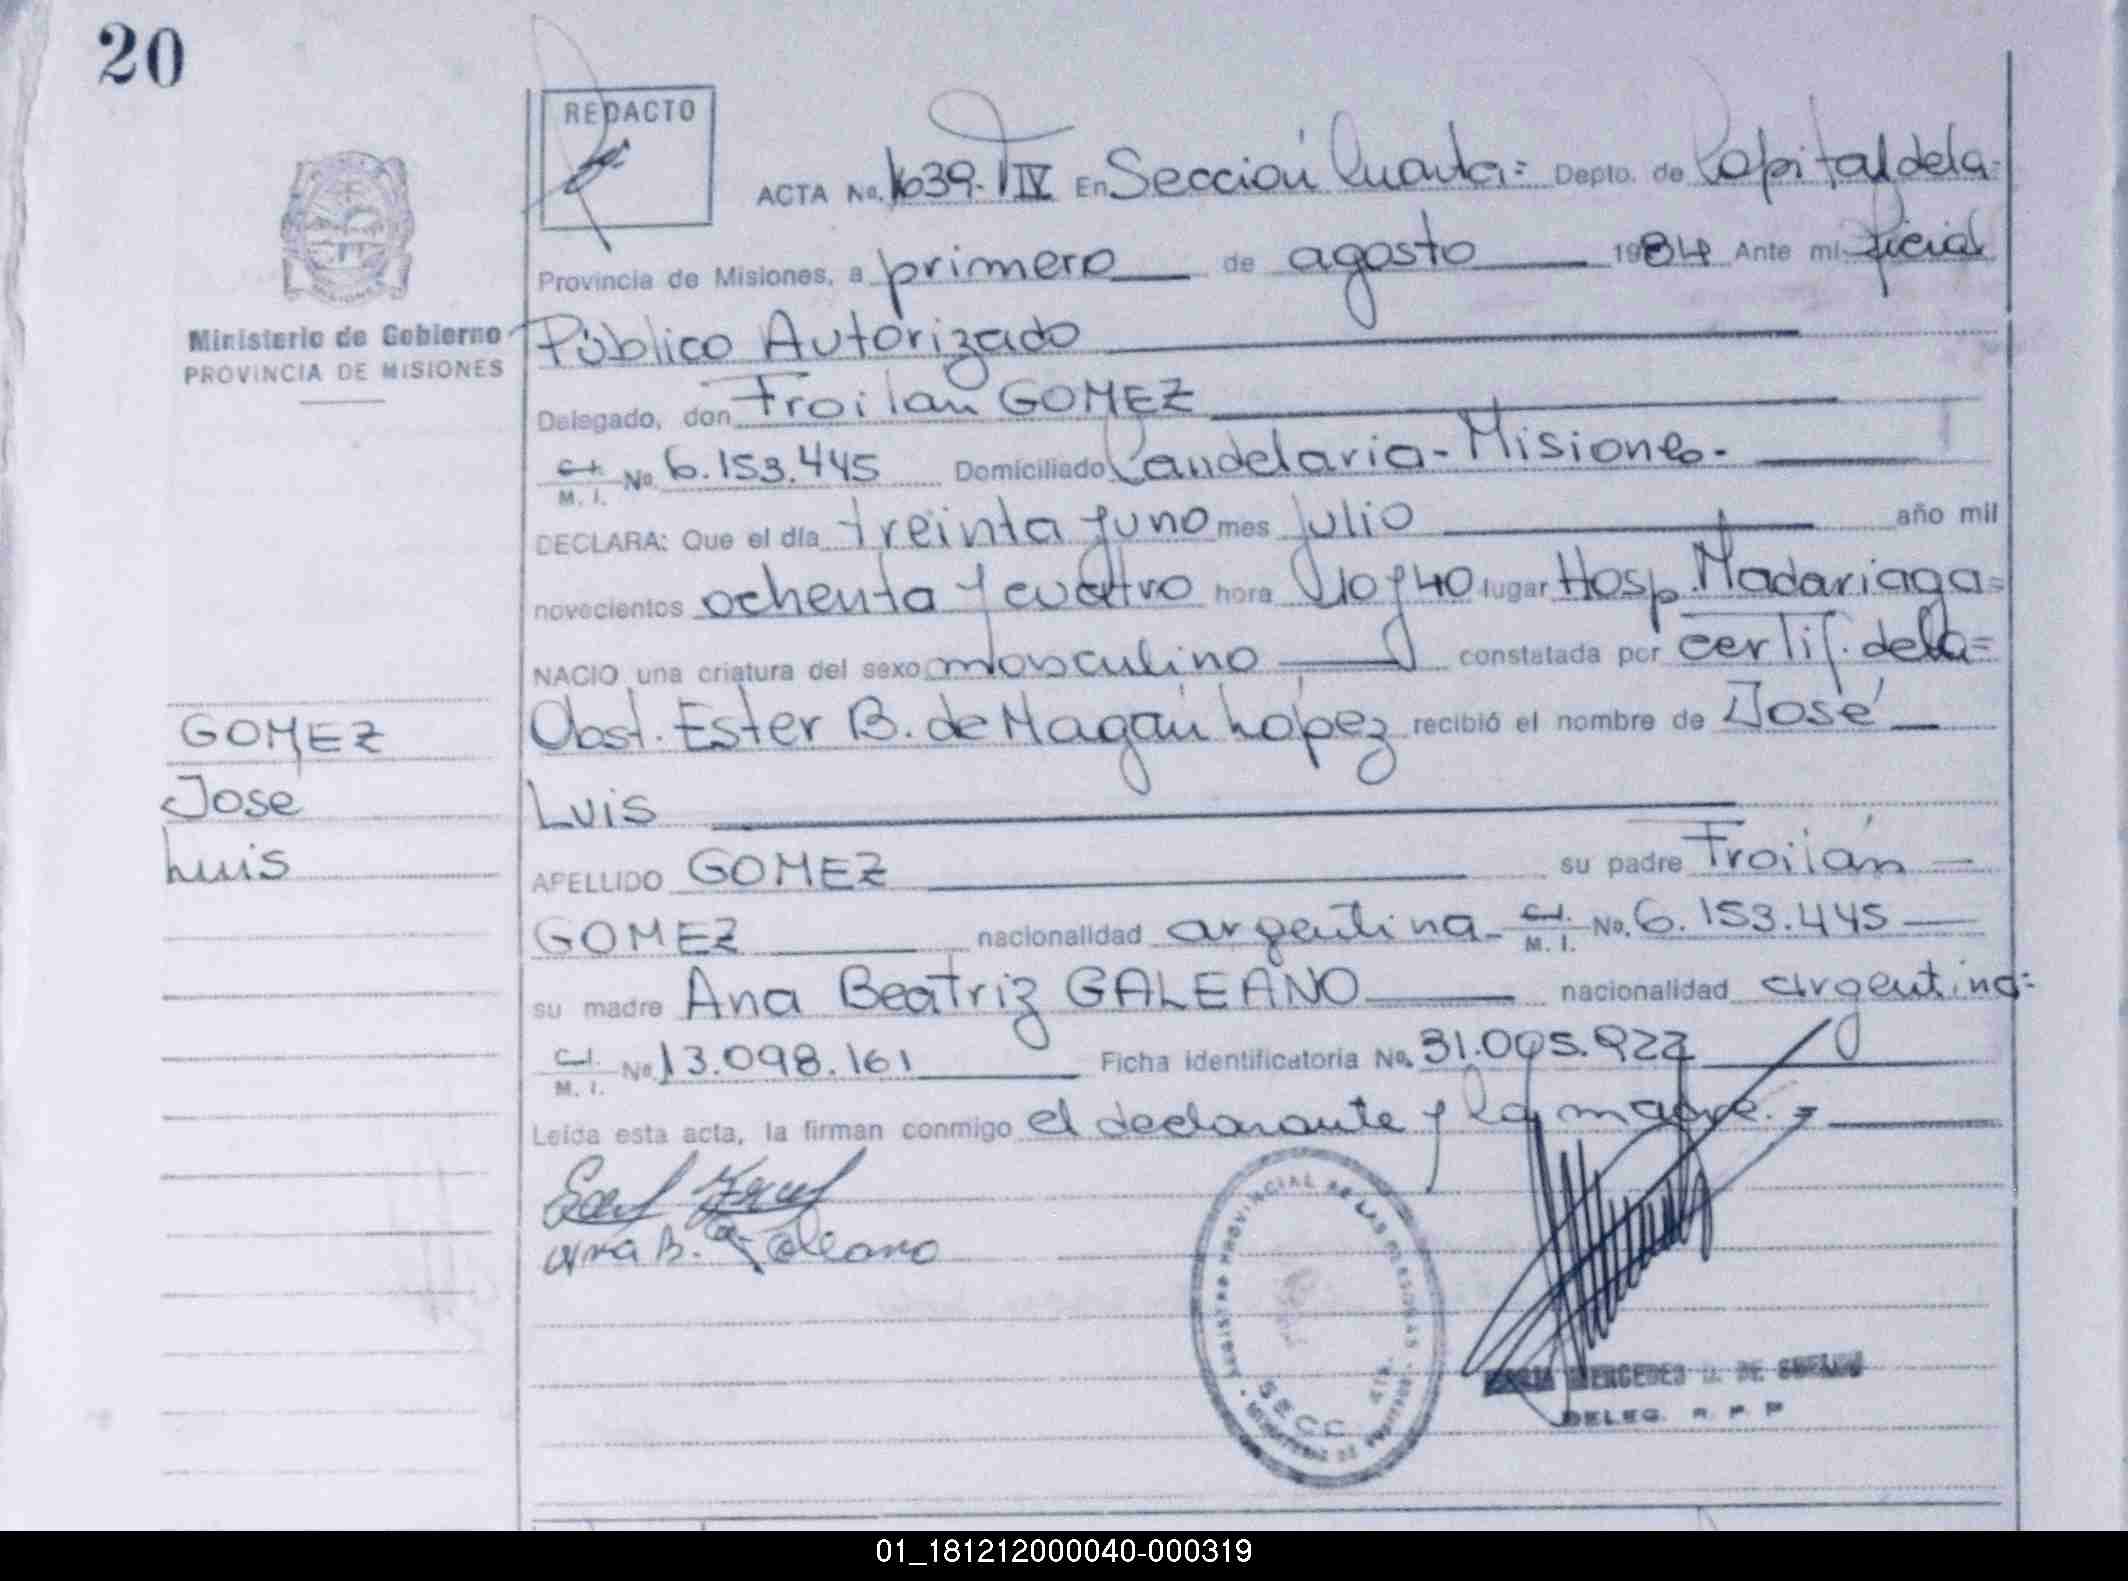 20
REDACTO
ACTA No. 1639. T IV En Sección Cuarta= Depto. de Capital de la=
Provincia de Misiones, a primero de agosto 1984 Ante mi Oficial
Ministerio de Gobierno
PROVINCIA DE MISIONES
Público Autorizado
Delegado, don Froilan GOMEZ
C.I. M. I. No 6.153.445 Domiciliado Candelaria - Misiones.-
DECLARA: Que el día treinta y uno mes julio año mil
novecientos ochenta y cuatro hora 10 y 40 lugar Hosp. Madariaga=
NACIO una criatura del sexo masculino constatada por certif. de la=
GOMEZ
Jose
Luis
Obst. Ester B. de Magán López recibió el nombre de José
Luis
APELLIDO GOMEZ su padre Froilán
GOMEZ nacionalidad argentina- C.I. M. I. No. 6.153.445
su madre Ana Beatriz GALEANO nacionalidad argentina=
C.I. M. I. No 13.098.161 Ficha identificatoria No. 31.005.922
Leida esta acta, la firman conmigo el declarante y la madre.=
Ana B. Galeano
REGISTRO PROVINCIAL DE LAS PERSONAS
SECC. 4ta.
MERCEDES D. DE
DELEG. R. P. P
01_181212000040-000319